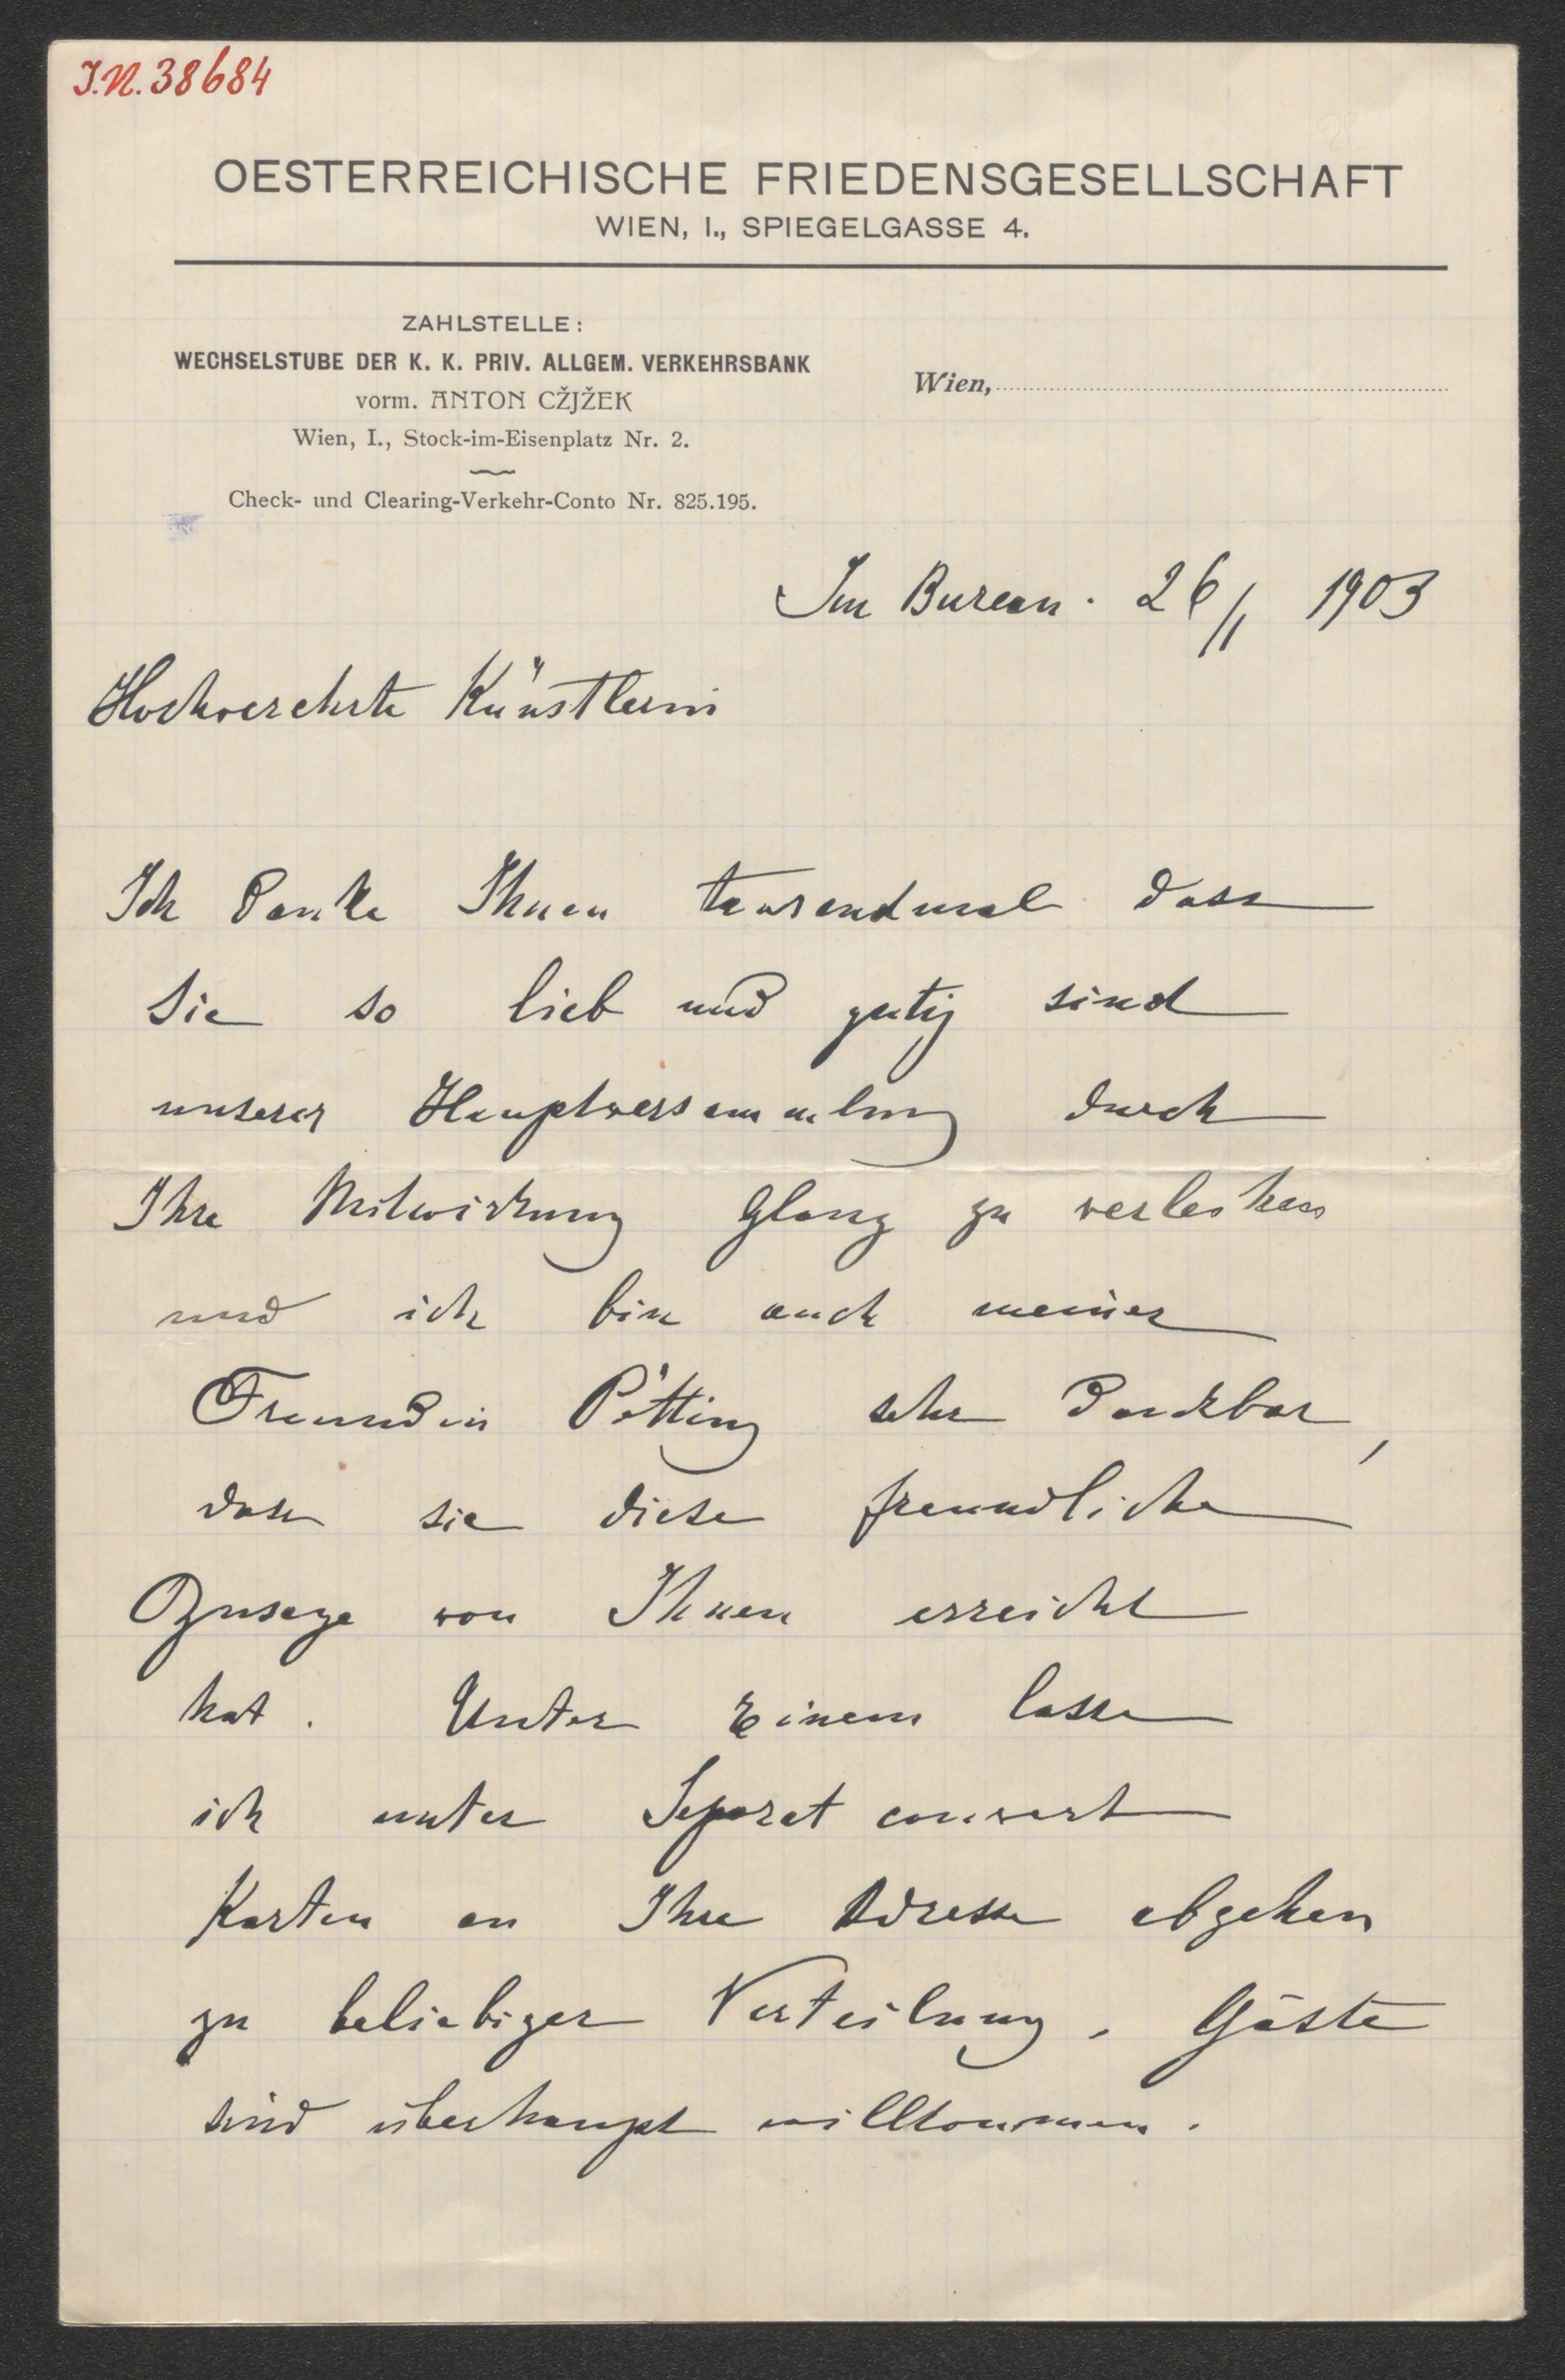 I.N. 38684
OESTERREICHISCHE FRIEDENSGESELLSCHAFT
WIEN, I., SPIEGELGASSE 4.
ZAHLSTELLE:
WECHSELSTUBE DER K. K. PRIV. ALLGEM. VERKEHRSBANK
vorm. ANTON CŽJŽEK
Wien, I., Stock-im-Eisenplatz Nr. 2.
Check- und Clearing-Verkehr-Conto Nr. 825.195.
Wien,
Im Bureau. 26/1 1903
Hochverehrte Künstlerin
Ich danke Ihnen tausendmal dass
Sie so lieb und gutig sind
unserer Hauptversammlung durch
Ihre Mitwirkung Glanz zu verleihen
und ich bin auch meiner
Freundin Pötting sehr dankbar,
dass sie diese freundliche
Zusage von Ihnen erreicht
hat. Unter Einem lasse
ich unter Separat couvert
Karten an Ihre Adresse abgehen
zu beliebiger Verteilung. Gäste
sind überhaupt willkommen.